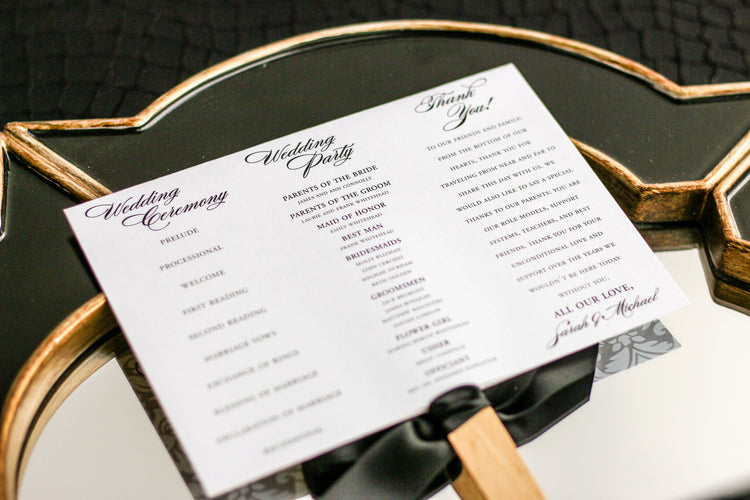 Wedding
Ceremony
PRELUDE
PROCESSIONAL
WELCOME
FIRST READING
SECOND READING
MARRIAGE VOWS
EXCHANGE OF RINGS
BLESSING OF MARRIAGE
DECLARATION OF MARRIAGE
RECESSIONAL
Wedding
Party
PARENTS OF THE BRIDE
JAMES AND ANN CONNOLLY
PARENTS OF THE GROOM
LAURIE AND FRANK WHITEHEAD
MAID OF HONOR
EMILY WHITEHEAD
BEST MAN
FRANK WHITEHEAD
BRIDESMAIDS
MOLLY
LYNN
MEGHAN DURHAM
BETH GOLDEN
GROOMSMEN
JACK BELMONT
JAMES
MATTHEW
LONDON
FLOWER GIRL
WHITEHEAD
USHER
BRIAN CONNOLLY
OFFICIANT
REV. DR. BENJAMIN
Thank
You!
TO OUR FRIENDS AND FAMILY:
FROM THE BOTTOM OF OUR
HEARTS, THANK YOU FOR
TRAVELING FROM NEAR AND FAR TO
SHARE THIS DAY WITH US. WE
WOULD ALSO LIKE TO SAY A SPECIAL
THANKS TO OUR PARENTS. YOU ARE
OUR ROLE MODELS, SUPPORT
SYSTEMS, TEACHERS, AND BEST
FRIENDS. THANK YOU FOR YOUR
UNCONDITIONAL LOVE AND
SUPPORT OVER THE YEARS WE
WOULDN'T BE HERE TODAY
WITHOUT YOU.
ALL OUR LOVE,
Sarah & Michael